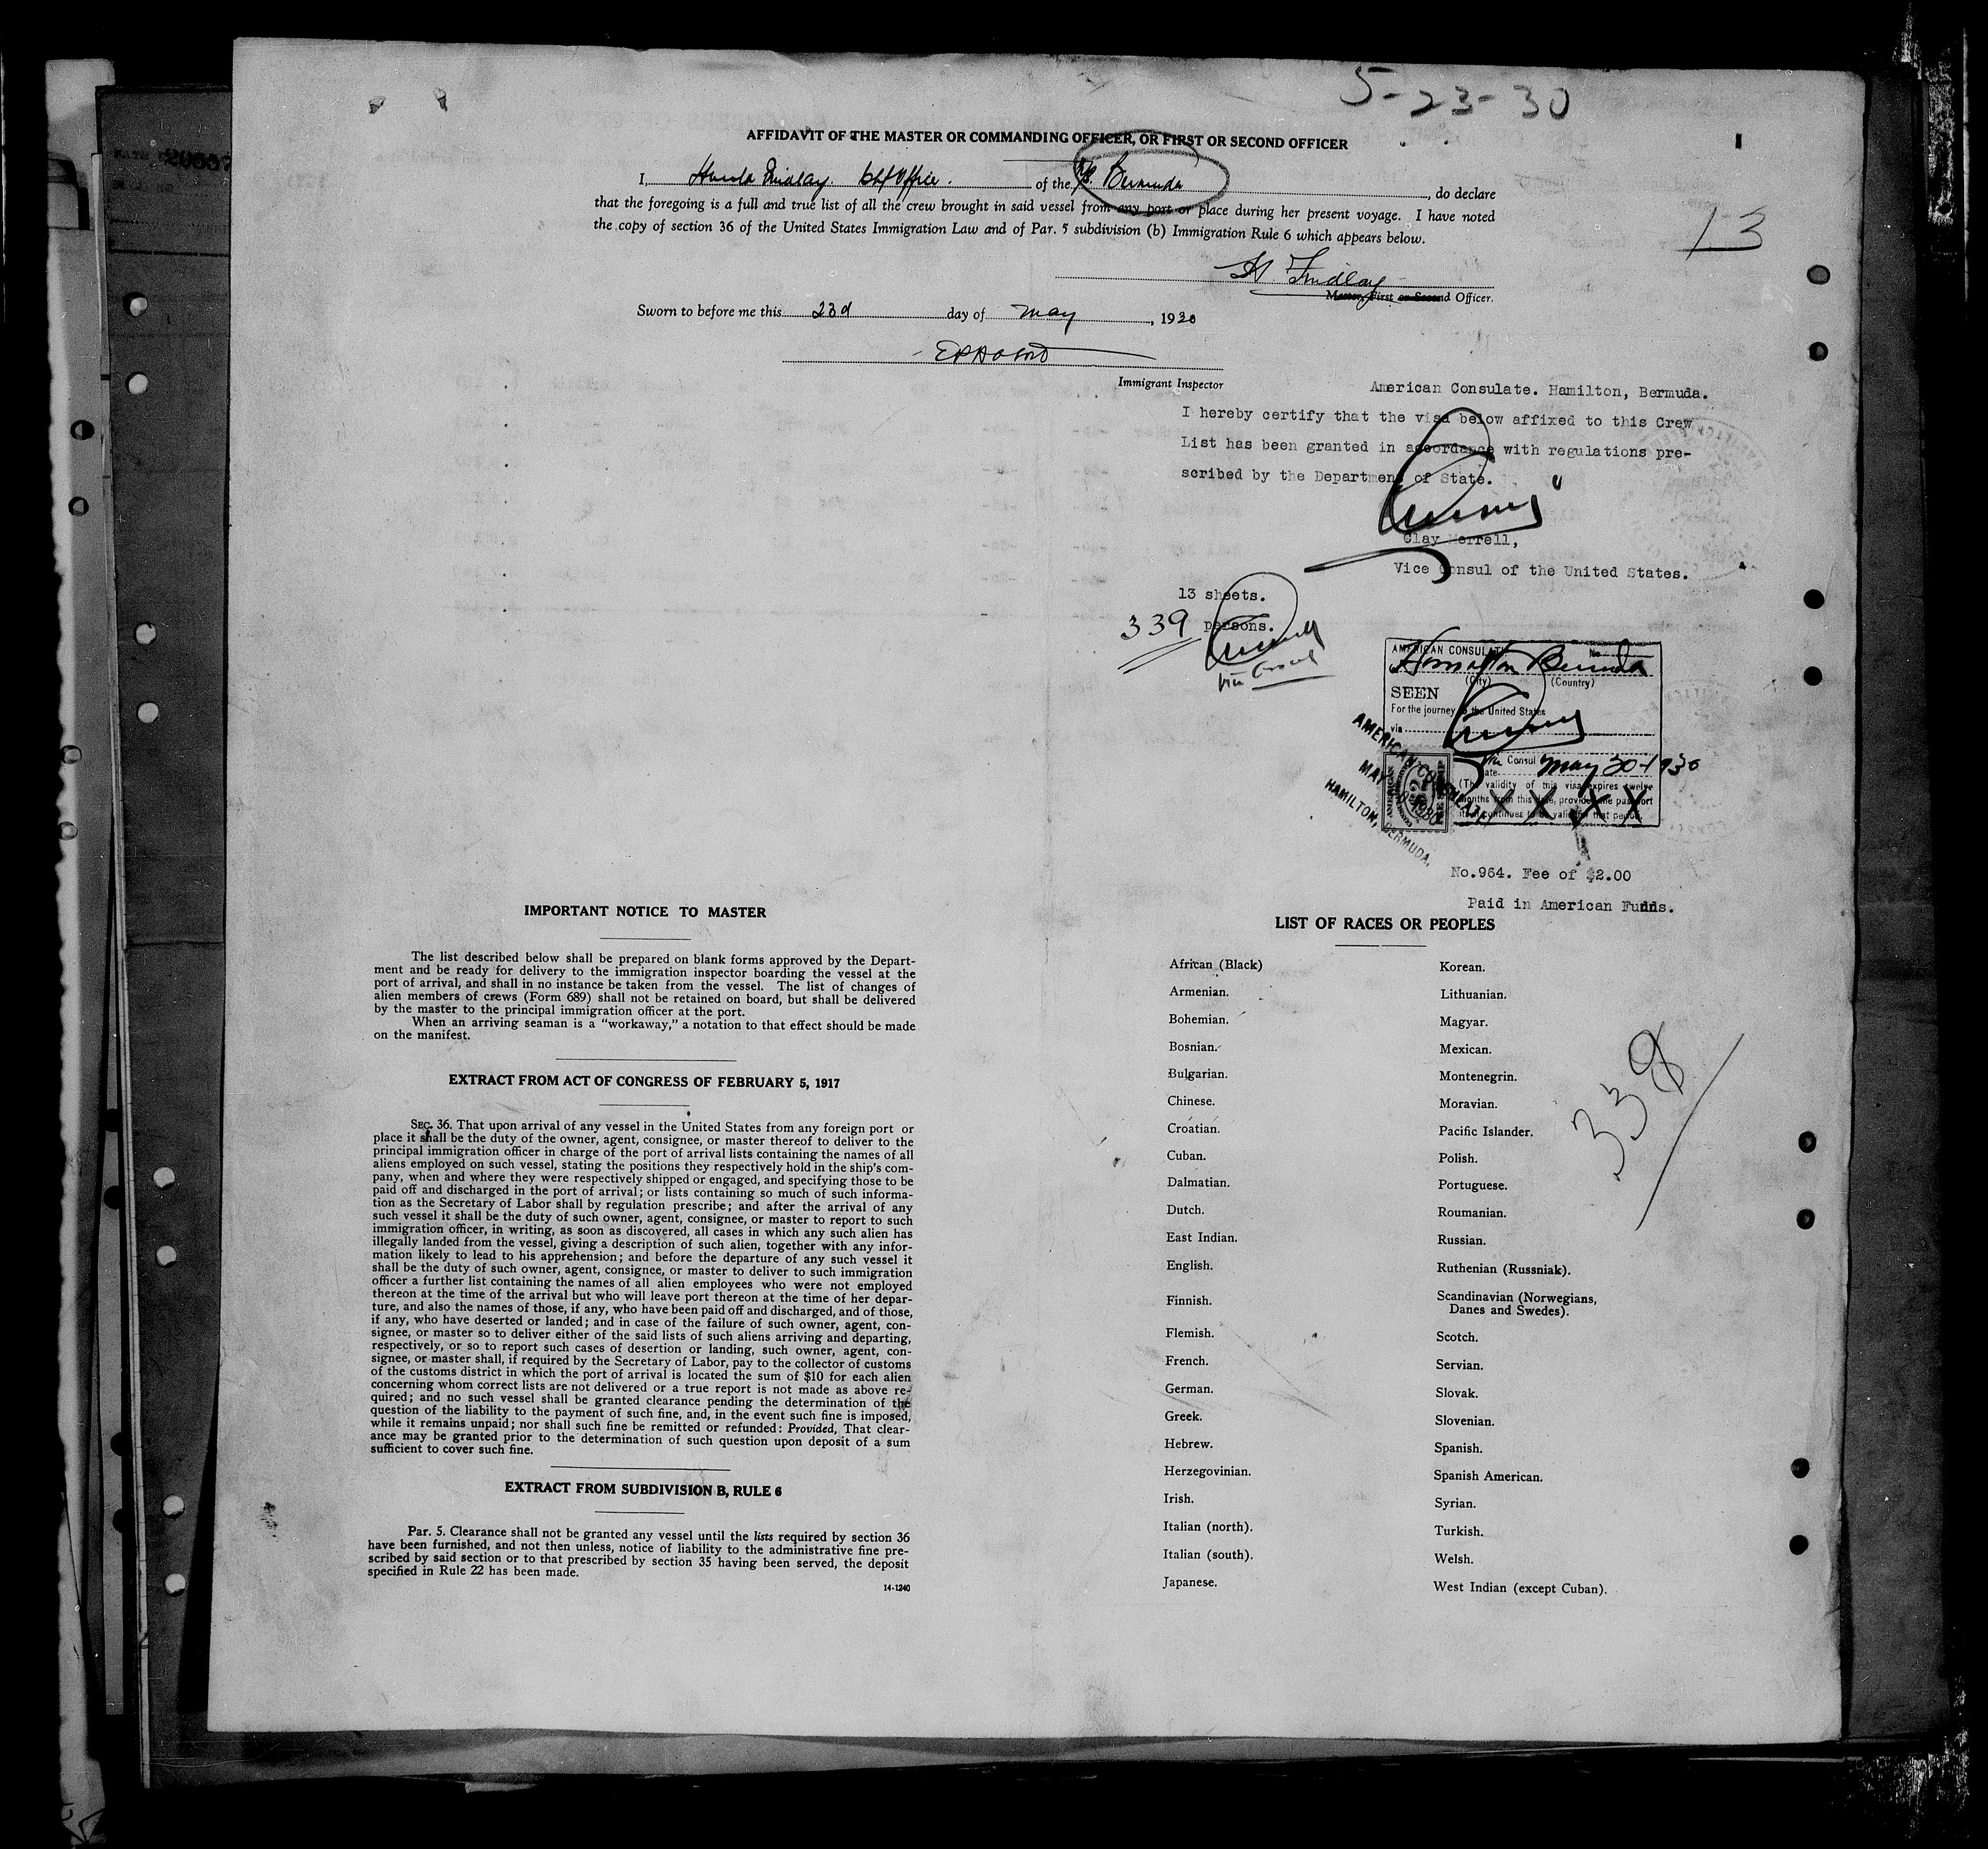 5-23-30
AFFIDAVIT OF THE MASTER OR COMMANDING OFFICER, OR FIRST OR SECOND OFFICER
I, Findlay. of the Bermuda, do declare
that the foregoing is a full and true list of all the crew brought in said vessel from any port or place during her present voyage. I have noted
the copy of section 36 of the United States Immigration Law and of Par. 5 subdivision (b) Immigration Rule 6 which appears below.
13
H. Findlay
Master, First or Second Officer.
Sworn to before me this 23d day of May, 1930
Immigrant Inspector
American Consulate. Hamilton, Bermuda.
I hereby certify that the visa below affixed to this Crew
List has been granted in accordance with regulations pre-
scribed by the Department of State.
Clay Merrell,
Vice Consul of the United States.
13 sheets.
339 persons.
Vice Consul
AMERICAN CONSULATE No.
Hamilton Bermuda
(City) (Country)
SEEN
For the journey to the United States
via
Vice Consul
Date May 20-1930
(The validity of this visa expires twelve
months from this date, provided the passport
itself continues to be valid for that period.
X X X X
AMERICAN CONSULATE
MAY 20 1930
HAMILTON, BERMUDA.
No.964. Fee of $2.00
Paid in American Funds.
IMPORTANT NOTICE TO MASTER
The list described below shall be prepared on blank forms approved by the Depart-
ment and be ready for delivery to the immigration inspector boarding the vessel at the
port of arrival, and shall in no instance be taken from the vessel. The list of changes of
alien members of crews (Form 689) shall not be retained on board, but shall be delivered
by the master to the principal immigration officer at the port.
When an arriving seaman is a "workaway," a notation to that effect should be made
on the manifest.
EXTRACT FROM ACT OF CONGRESS OF FEBRUARY 5, 1917
SEC. 36. That upon arrival of any vessel in the United States from any foreign port or
place it shall be the duty of the owner, agent, consignee, or master thereof to deliver to the
principal immigration officer in charge of the port of arrival lists containing the names of all
aliens employed on such vessel, stating the positions they respectively hold in the ship's com-
pany, when and where they were respectively shipped or engaged, and specifying those to be
paid off and discharged in the port of arrival; or lists containing so much of such informa-
tion as the Secretary of Labor shall by regulation prescribe; and after the arrival of any
such vessel it shall be the duty of such owner, agent, consignee, or master to report to such
immigration officer, in writing, as soon as discovered, all cases in which any such alien has
illegally landed from the vessel, giving a description of such alien, together with any infor-
mation likely to lead to his apprehension; and before the departure of any such vessel it
shall be the duty of such owner, agent, consignee, or master to deliver to such immigration
officer a further list containing the names of all alien employees who were not employed
thereon at the time of the arrival but who will leave port thereon at the time of her depar-
ture, and also the names of those, if any, who have been paid off and discharged, and of those,
if any, who have deserted or landed; and in case of the failure of such owner, agent, con-
signee, or master so to deliver either of the said lists of such aliens arriving and departing,
respectively, or so to report such cases of desertion or landing, such owner, agent, con-
signee, or master shall, if required by the Secretary of Labor, pay to the collector of customs
of the customs district in which the port of arrival is located the sum of $10 for each alien
concerning whom correct lists are not delivered or a true report is not made as above re-
quired; and no such vessel shall be granted clearance pending the determination of the
question of the liability to the payment of such fine, and, in the event such fine is imposed,
while it remains unpaid; nor shall such fine be remitted or refunded: Provided, That clear-
ance may be granted prior to the determination of such question upon deposit of a sum
sufficient to cover such fine.
EXTRACT FROM SUBDIVISION B, RULE 6
Par. 5. Clearance shall not be granted any vessel until the lists required by section 36
have been furnished, and not then unless, notice of liability to the administrative fine pre-
scribed by said section or to that prescribed by section 35 having been served, the deposit
specified in Rule 22 has been made.
14-1240
LIST OF RACES OR PEOPLES
African (Black)
Armenian.
Bohemian.
Bosnian.
Bulgarian.
Chinese.
Croatian.
Cuban.
Dalmatian.
Dutch.
East Indian.
English.
Finnish.
Flemish.
French.
German.
Greek.
Hebrew.
Herzegovinian.
Irish.
Italian (north).
Italian (south).
Japanese.
Korean.
Lithuanian.
Magyar.
Mexican.
Montenegrin.
Moravian.
Pacific Islander.
Polish.
Portuguese.
Roumanian.
Russian.
Ruthenian (Russniak).
Scandinavian (Norwegians,
Danes and Swedes).
Scotch.
Servian.
Slovak.
Slovenian.
Spanish.
Spanish American.
Syrian.
Turkish.
Welsh.
West Indian (except Cuban).
339